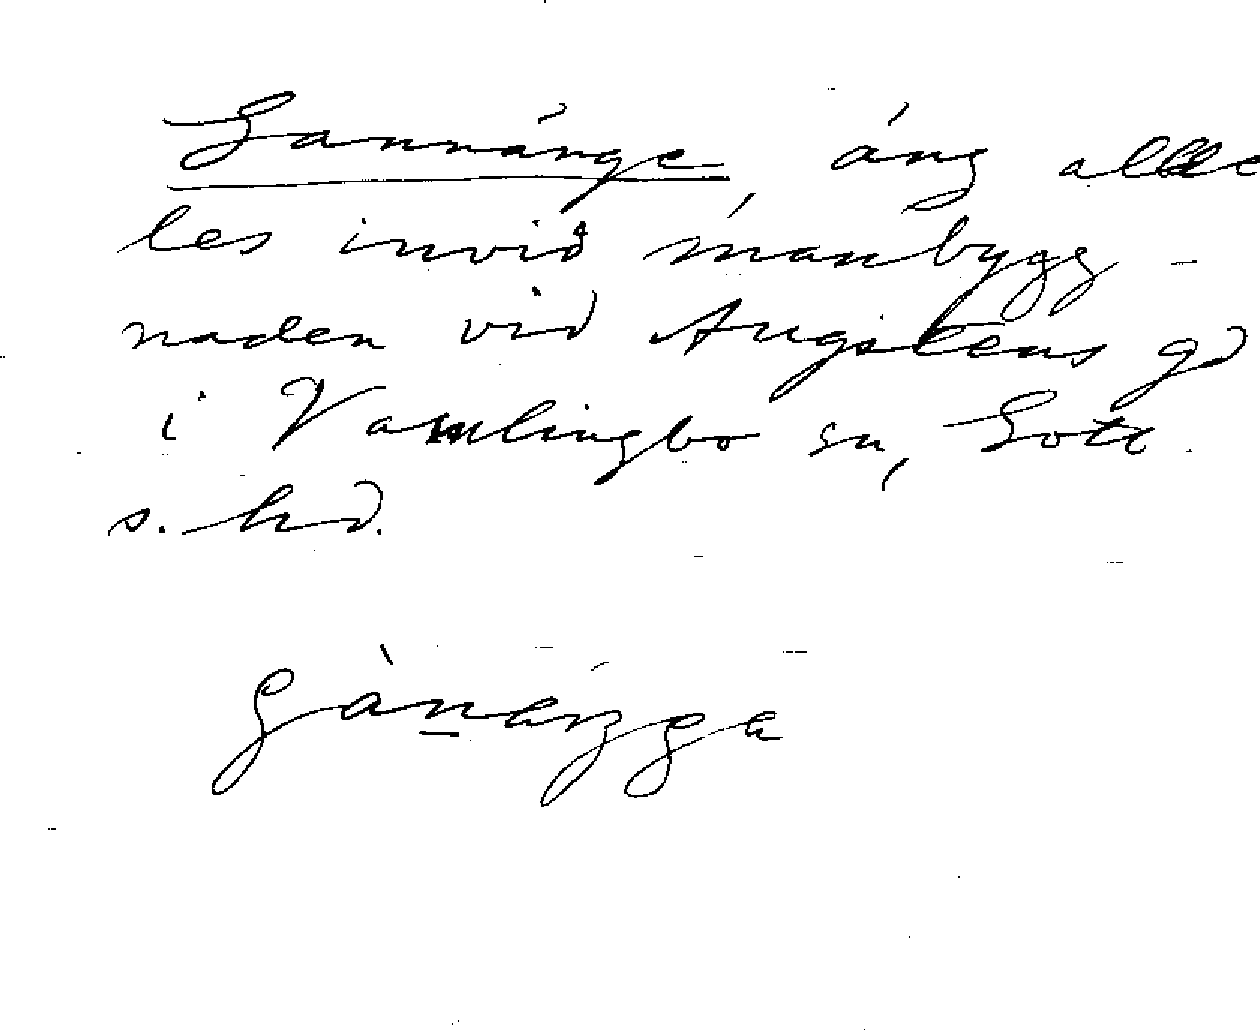 Gannänge, äng allde
les invid manbygg-
naden vid Augstens gd
i Vamlingbo sn, Gotl.
s. hd.
gànängge